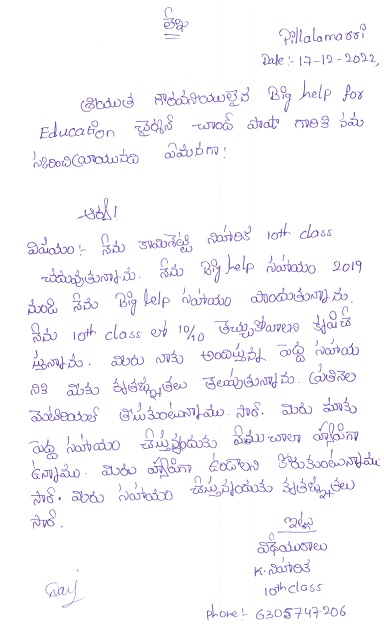 లేఖ
Pillalamarri
Date :- 17-12-2022,
శ్రీయుత గౌరవనీయులైన Big help for
Education చైర్మన్ చాంద్ పాషా గారికి నమ
స్కరించి వ్రాయునది ఏమనగా!
ఆర్యా!
విషయం :- నేను కామిశెట్టి నిహారిక 10th class
చదువుతున్నాను. నేను Big help సహాయం 2019
నుండి నేను Big help సహాయం పొందుతున్నాను.
నేను 10th class లో 10/10 తెచ్చుకోవాలని కృషిచే
స్తున్నాను. మీరు నాకు అందిస్తున్న పెద్ద సహాయ
నికి మీకు కృతజ్ఞతలు తెలుపుతున్నాను. ప్రతినెల
మెటిరియల్ తీసుకుంటున్నాము. సార్. మీరు మాకు
పెద్ద సహాయం చేస్తున్నందుకు మేము చాలా హ్యాపీగా
ఉన్నాము. మీరు హ్యాపీగా ఉండాలని కోరుకుంటున్నాము
సార్. మీరు సహాయం చేస్తున్నందుకు కృతజ్ఞతలు
సార్.
ఇట్లు
విధేయురాలు
K. నిహారిక
10th class
phone :- 6305747206